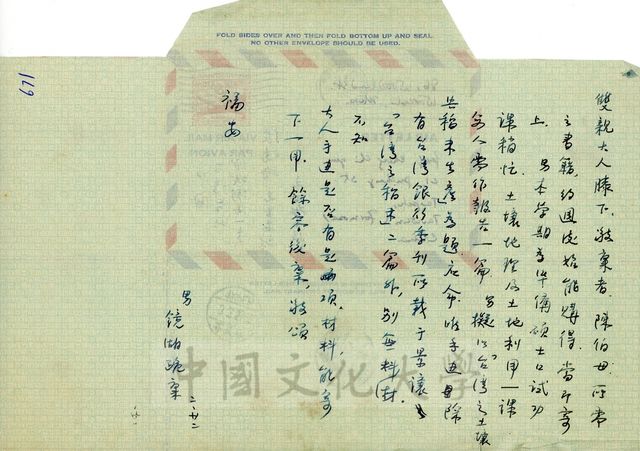 FOLD SIDES OVER AND THEN FOLD BOTTOM UP AND SEAL
NO OTHER ENVELOPE SHOULD BE USED.
671
雙親大人膝下敬稟者：陳伯母所需
之書籍，約國後始能購得，當即寄
上。男本學期為準備碩士口試功
課稍忙，土壤地理及土地利用一課
每人需作報告一篇，男擬以「台灣之土壤
與稻米生產」為題，唯手邊母除
有台灣銀行季刊所載
「台灣之稻米」二篇外，別無料材，
不知
大人手邊是否有是項材料，能寄
下一用，餘容後稟，敬頌
福安
男
鏡湖跪稟
二、廿二
中國文化大學